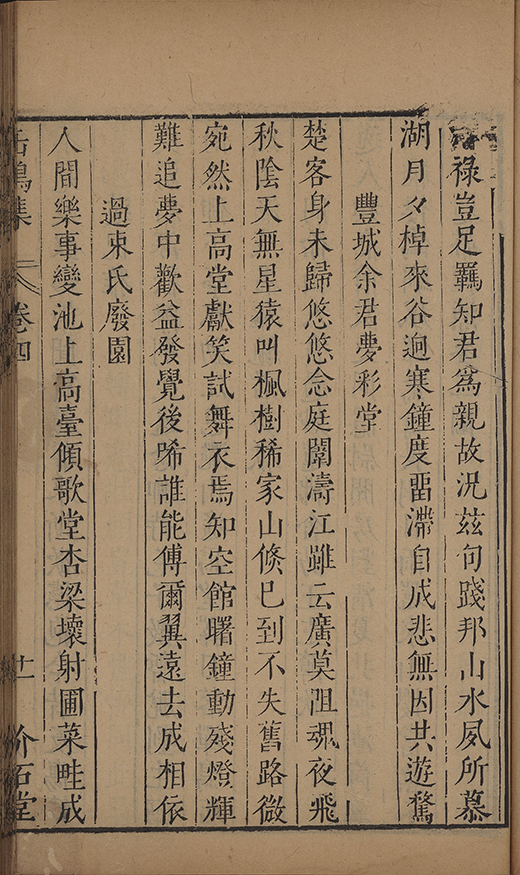 祿豈足羈知君為親故況茲句踐邦山水夙所慕
湖月夕棹來谷逈寒鐘度畱滯自成悲無因共遊騖
豐城余君夢彩堂
楚客身未歸悠悠念庭闈濤江雖云廣莫阻魂夜飛
秋陰天無星猿叫楓樹稀家山倏已到不失舊路微
宛然上高堂獻笑試舞衣焉知空館曙鐘動殘燈輝
難追夢中歡益發覺後唏誰能傅爾翼遠去成相依
過束氏廢園
人間樂事變池上高臺傾歌堂杏梁壞射圃菜畦成
缶鳴集 卷四 十一 介石堂